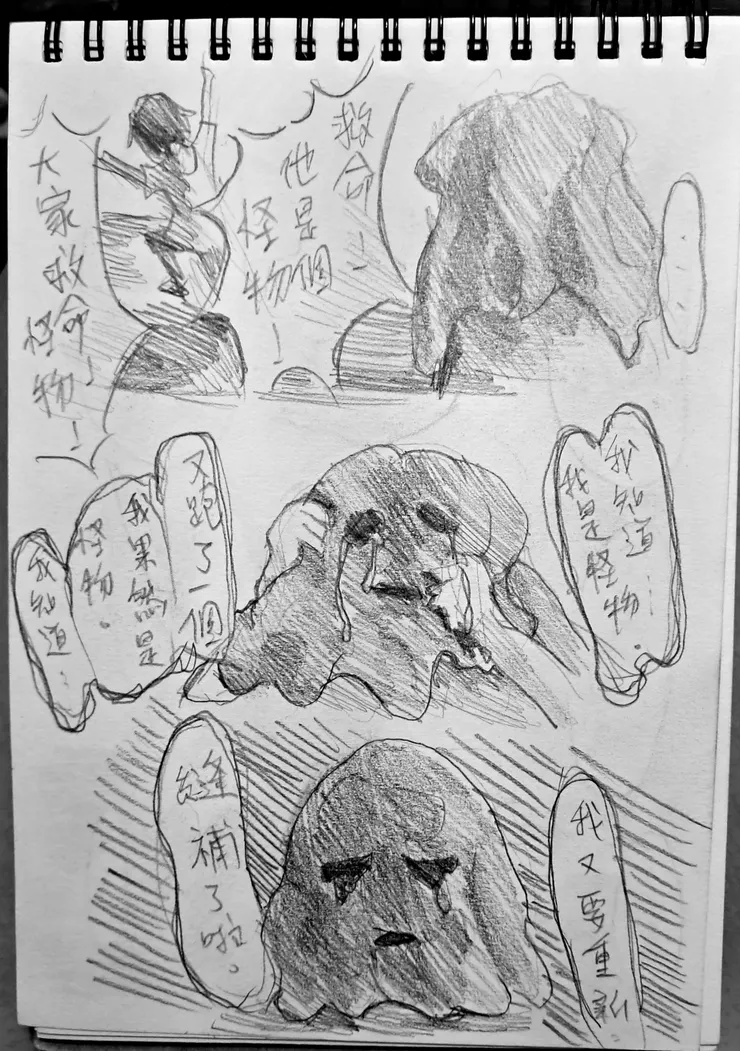 救命！
他是個
怪物！
大家救命！
怪物！
......
我知道…
我是怪物。
又跑了一個
我果然是
怪物。
我知道…
我又要重新
縫補了啦。